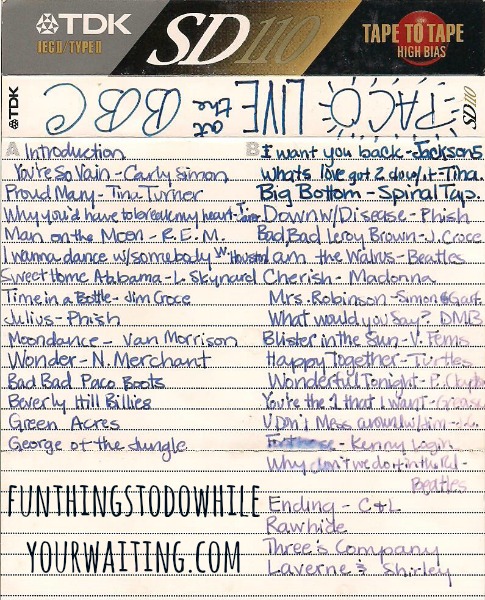 TDK
IECII/TYPEII
SD110
TAPE TO TAPE
HIGH BIAS
TDK
PACO LIVE at the BBC
SD110
A Introduction
You're So Vain - Carly Simon
Proud Mary - Tina Turner
Why you'd have to break my heart - T.
Man on the Moon - R.E.M.
I wanna dance w/somebody W. Houston
Sweet Home Alabama - L. Skynard
Time in a Bottle - Jim Croce
Julius - Phish
Moondance - Van Morrison
Wonder - N. Merchant
Bad Bad Paco Boots
Beverly Hill Billies
Green Acres
George of the Jungle
B I want you back - Jackson5
whats love got 2 do w/it - Tina.
Big Bottom - Spinal Tap.
Down w/Disease - Phish
Bad, Bad Leroy Brown - J. Croce
I am the Walrus - Beatles
Cherish - Madonna
Mrs. Robinson - Simon & Garf.
What would you Say? DMB
Blister in the Sun - V. Fems
Happy Together - Turtles
Wonderful Tonight - E. Clapton
You're the 1 that I want - Grease
U Don't Mess around w/him -
Footloose - Kenny Login
Why don't we do it in the rd -
Beatles
Ending - C & L
Rawhide
Three's Company
Laverne & Shirley
FUNTHINGSTODOWHILE
YOURWAITING.COM